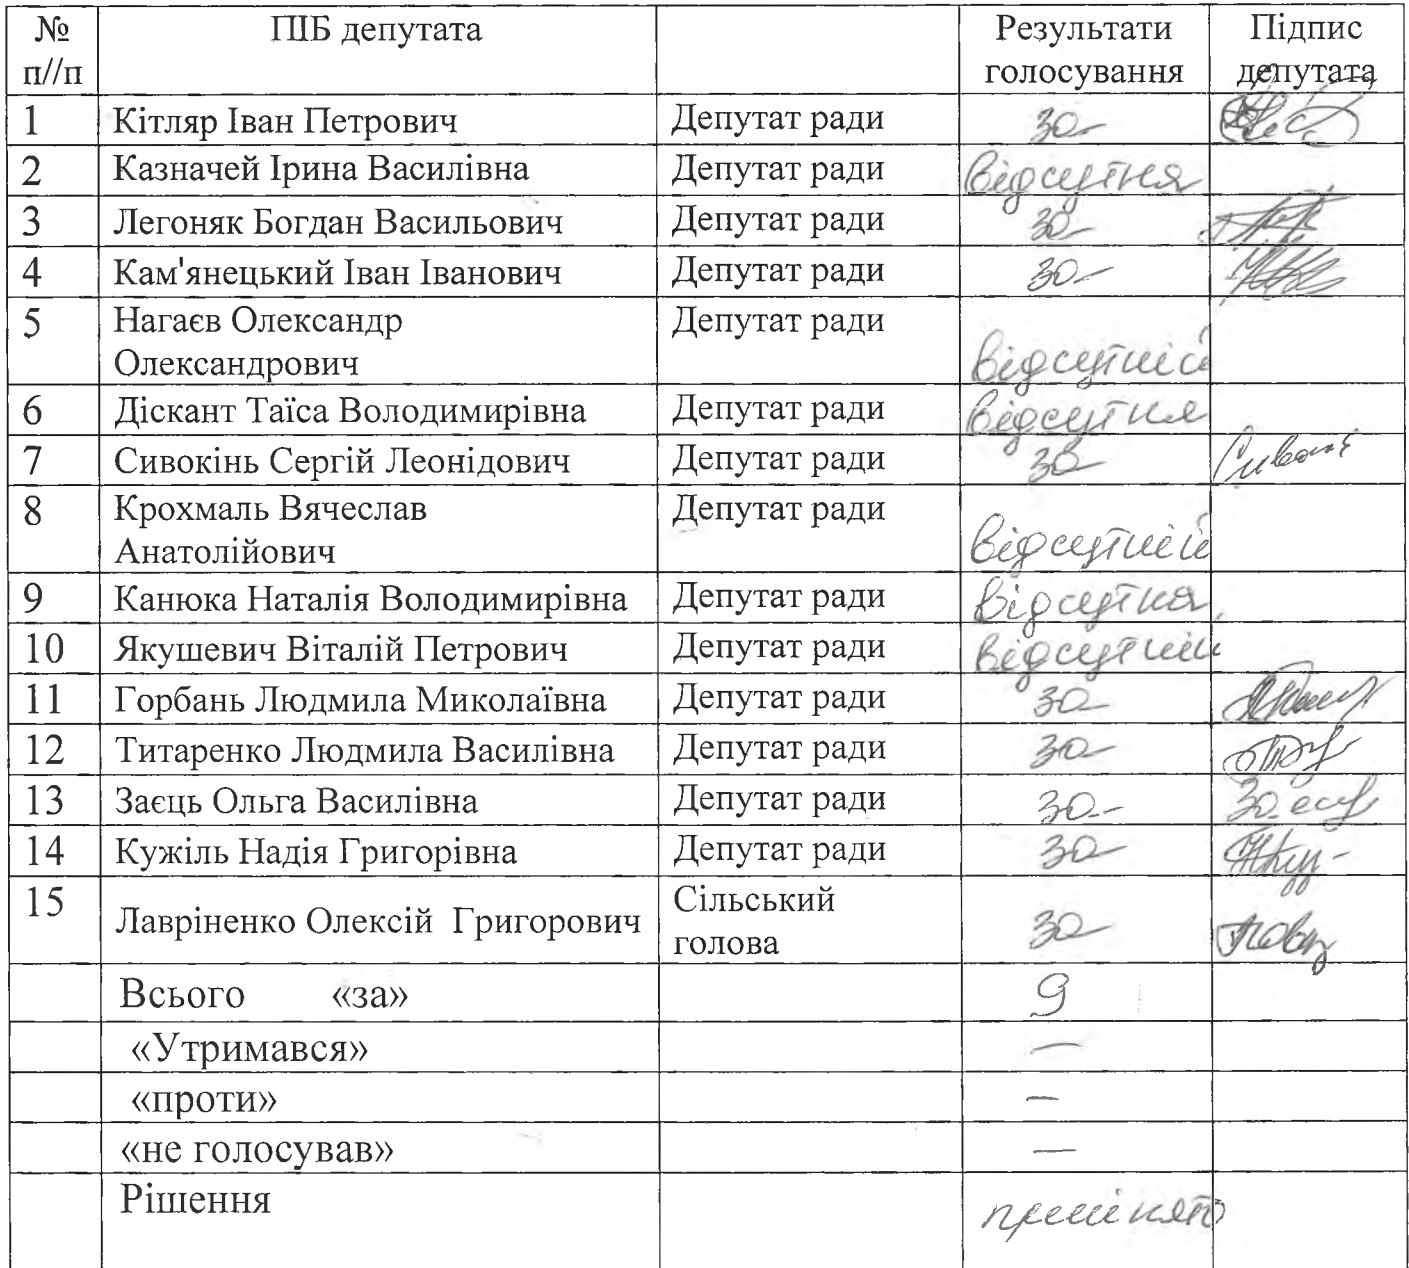 № п//п ПІБ депутата Результати голосування Підпис депутата
1 Кітляр Іван Петрович Депутат ради за
2 Казначей Ірина Василівна Депутат ради відсутня
3 Легоняк Богдан Васильович Депутат ради за
4 Кам'янецький Іван Іванович Депутат ради за
5 Нагаєв Олександр Олександрович Депутат ради відсутній
6 Діскант Таїса Володимирівна Депутат ради відсутня
7 Сивокінь Сергій Леонідович Депутат ради за
8 Крохмаль Вячеслав Анатолійович Депутат ради відсутній
9 Канюка Наталія Володимирівна Депутат ради відсутня
10 Якушевич Віталій Петрович Депутат ради відсутній
11 Горбань Людмила Миколаївна Депутат ради за
12 Титаренко Людмила Василівна Депутат ради за
13 Заєць Ольга Василівна Депутат ради за
14 Кужіль Надія Григорівна Депутат ради за
15 Лавріненко Олексій Григорович Сільський голова за
Всього «за» 9
«Утримався» —
«проти» —
«не голосував» —
Рішення